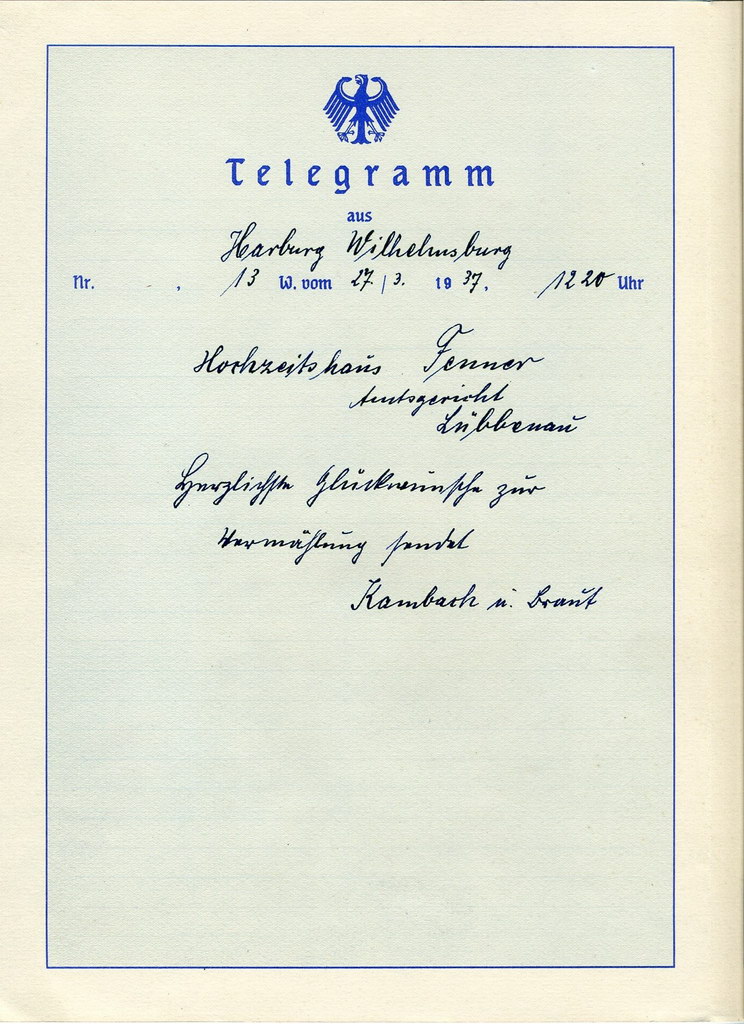 Telegramm
aus
Harburg Wilhelmsburg
Nr. , 13 W. vom 27. / 3. 1937, 1220 Uhr
Hochzeitshaus Fenner
Amtsgericht
Lübbenau
Herzlichste Glückwünsche zur
Vermählung sendet
Kambach u. Braut